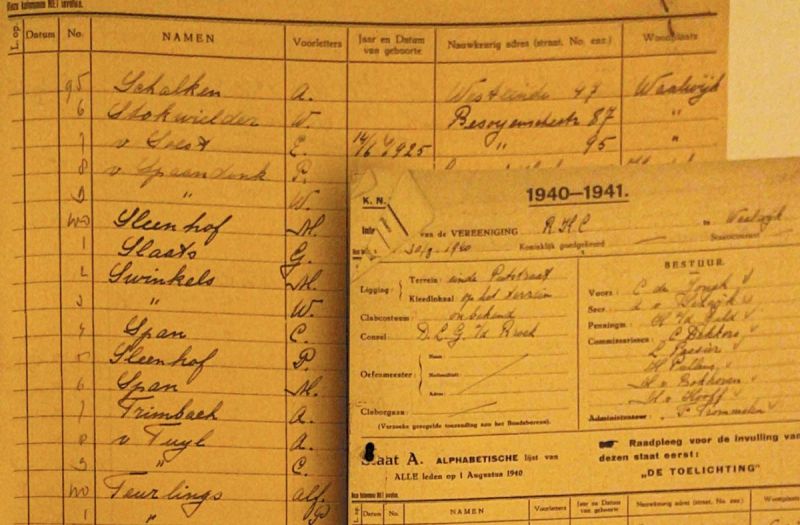 Deze kolommen NIET invullen.
L. op. Datum No. NAMEN Voorletters Jaar en Datum van geboorte Nauwkeurig adres (straat, No. enz.) Woonplaats
95 Schalken A. Westeinde 47 Waalwijk
6 Stokwielder W. Besoyenschestr 87 "
7 v Soest E. 14/6 1925 " 95 "
8 v Spaandonk P.
9 " W.
100 Steenhof M.
1 Slaats G.
2 Swinkels M.
3 " W.
4 Span C.
5 Steenhof P.
6 Span M.
7 Trimbach A.
8 v Tuyl A.
9 " C.
Teurlings Alf.
1 " P
K. N. 1940-1941.
van de VEREENIGING R.K.C. te Waalwijk
30/8 1940 Koninklijk goedgekeurd Staatscourant
BESTUUR.
Ligging: Terrein: einde Putstraat
Kleedlokaal op het terrein
Clubcostuum onbekend
Consul D. L. G. v/d Broek
Oefenmeester: Naam:
Nationaliteit:
Adres:
Cluborgaan:
(Verzoeke geregelde toezending aan het Bondsbureau).
Voorz: C de Jongh
Secr:
Penningm.
Commissarissen: C Dekkers
L. Passier
H v Gokhoven
H v Hooff
Administrateur: P Trommelen
Staat A. ALPHABETISCHE lijst van
ALLE leden op 1 Augustus 1940
Raadpleeg voor de invulling van
dezen staat eerst:
"DE TOELICHTING"
Deze kolommen NIET invullen.
L. op. Datum No. NAMEN Voorletters Jaar en Datum van geboorte Nauwkeurig adres (straat, No. enz.) Woonplaats